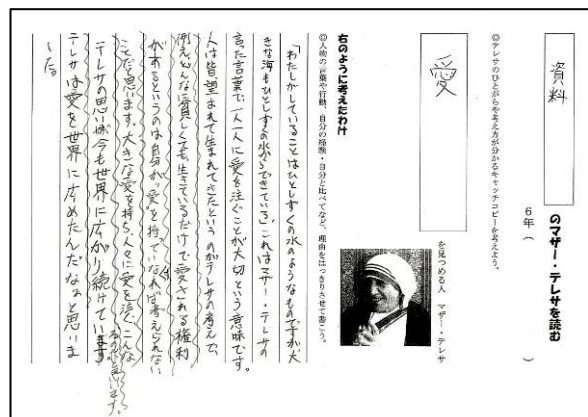 資料
のマザー・テレサを読む
6年（　　　）
◎テレサのひとがらや考え方が分かるキャッチコピーを考えよう。
愛
を見つめる人　マザー・テレサ
右のように考えたわけ
◎人物の言葉や行動、自分の経験・自分と比べてなど、理由をはっきりさせて書こう。
「わたしがしていることはひとしずくの水のようなものですが、大
きな海もひとしずくの水からできている。」これはマザー・テレサの
言った言葉で、一人一人に愛を注ぐことが大切という意味です。
人は皆、望まれて生まれてきたというのがテレサの考えで、
例えどんなに貧しくても、生きているだけで愛される権利
がするというのは自分が"愛"を持っていなければ考えられない
ことだと思います。大きな愛を持ち、人々に愛を注ぐ、こんな
テレサの思いが今も世界に広がり続けています。
テレサは愛を世界に広めたんだなぁと思いま
した。